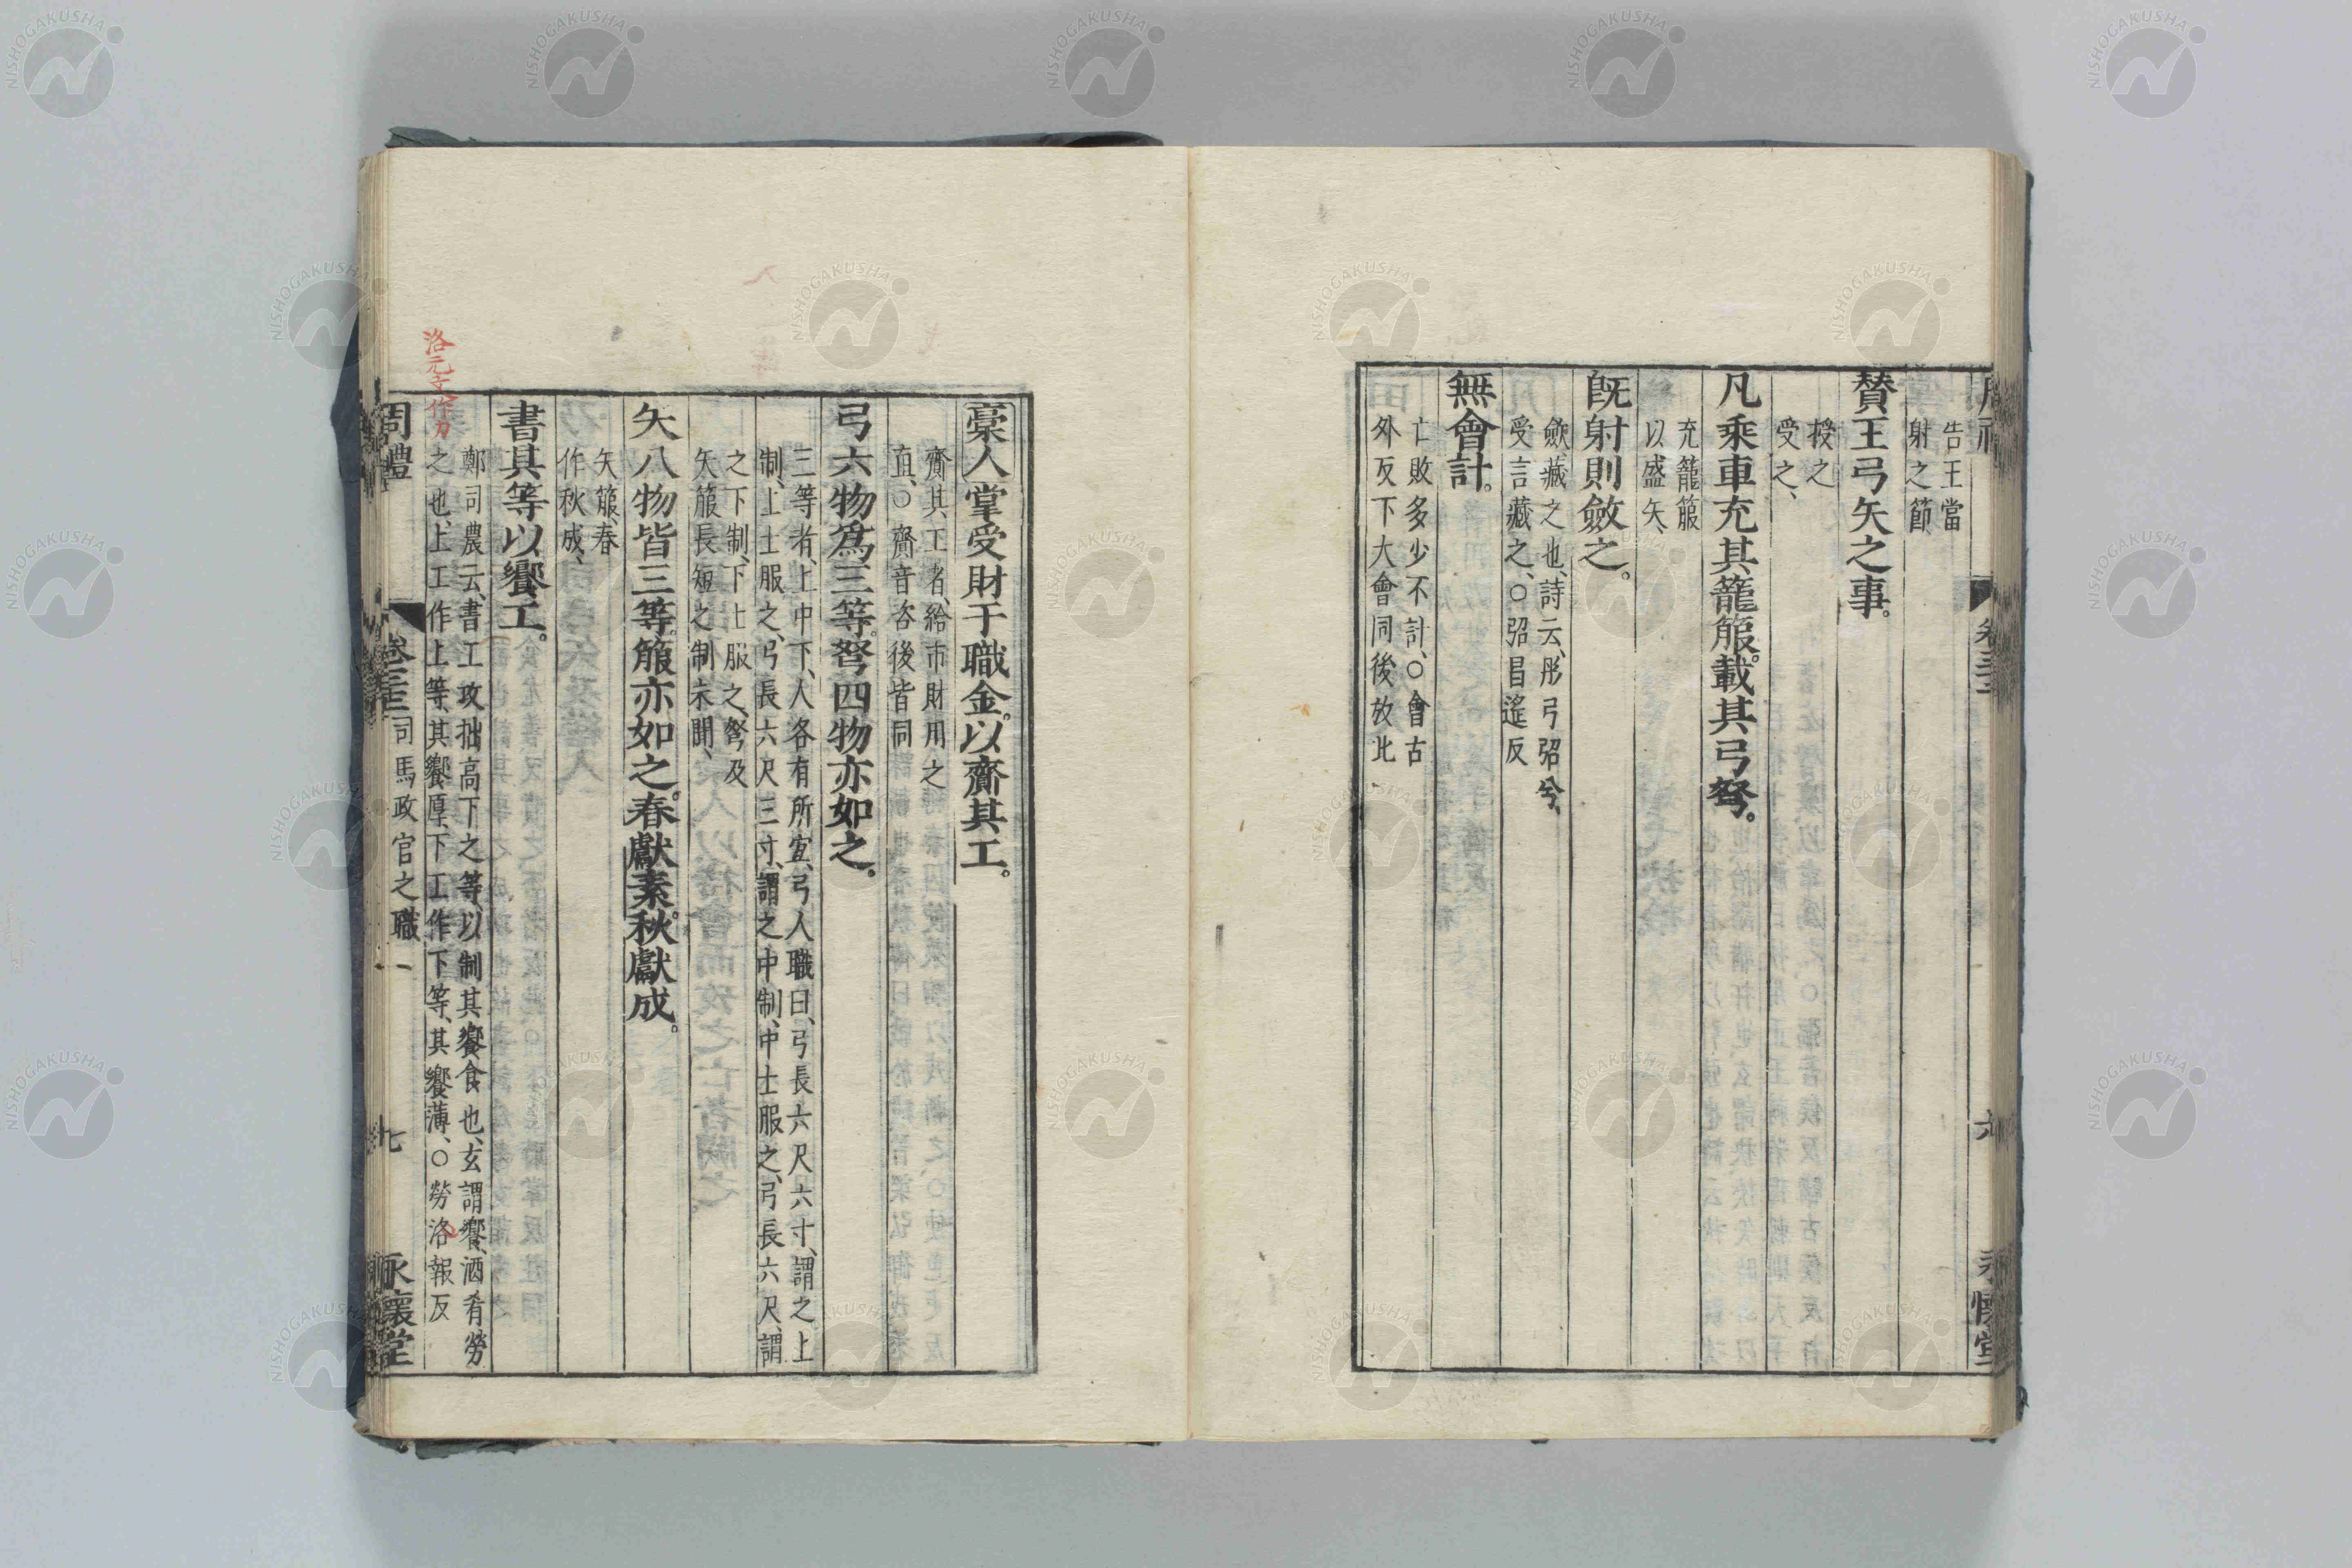 告王當
射之節
贊王弓矢之事。
授之
受之、
凡乘車充其籠箙。載其弓弩。
充籠箙
以盛矢、
旣射則斂之。
斂、藏之也、詩云、彤弓弨兮、
受言藏之、○弨昌遙反
無會計。
亡敗多少不計、○會古
外反下大會同後放此
六
永懷堂
槀人掌受財于職金。以齎其工。
齎其工者、給市財用之
直、○齎音咨後皆同
弓六物爲三等。弩四物亦如之。
三等者、上中下、人各有所宜、弓人職曰、弓長六尺六寸、謂之上
制、上士服之、弓長六尺三寸、謂之中制、中士服之、弓長六尺、謂
之下制、下士服之、弩及
矢箙長短之制未聞、
矢八物皆三等。箙亦如之。春獻素。秋獻成。
矢箙、春
作秋成、
書其等以饗工。
鄭司農云、書工攻拙高下之等、以制其饗食也、玄謂饗、酒肴勞
之也、上工作上等、其饗厚、下工作下等、其饗薄、○勞洛報反
洛元文作力
周禮
卷三十二
司馬政官之職一
七
永懷堂
NISHOGAKUSHA